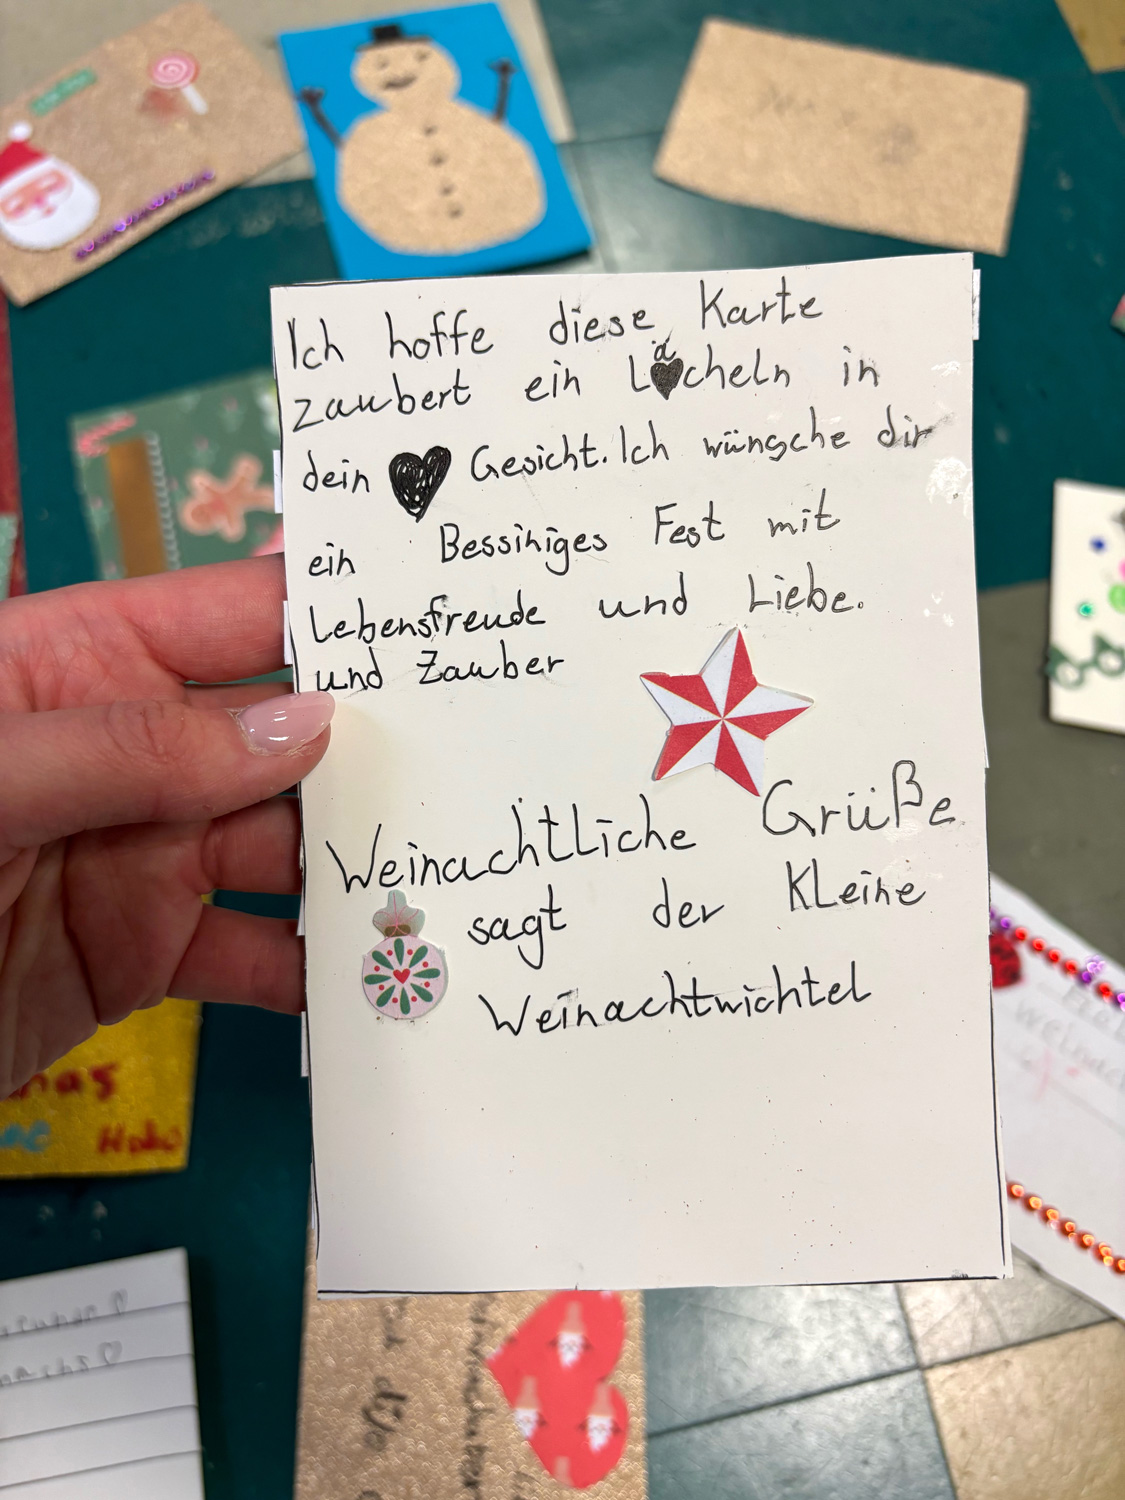 Ich hoffe diese Karte
zaubert ein Lächeln in
dein Gesicht. Ich wünsche dir
ein Bessihiges Fest mit
Lebensfreude und Liebe.
und Zauber
Weinachtliche Grüße
sagt der Kleine
Weinachtwichtel